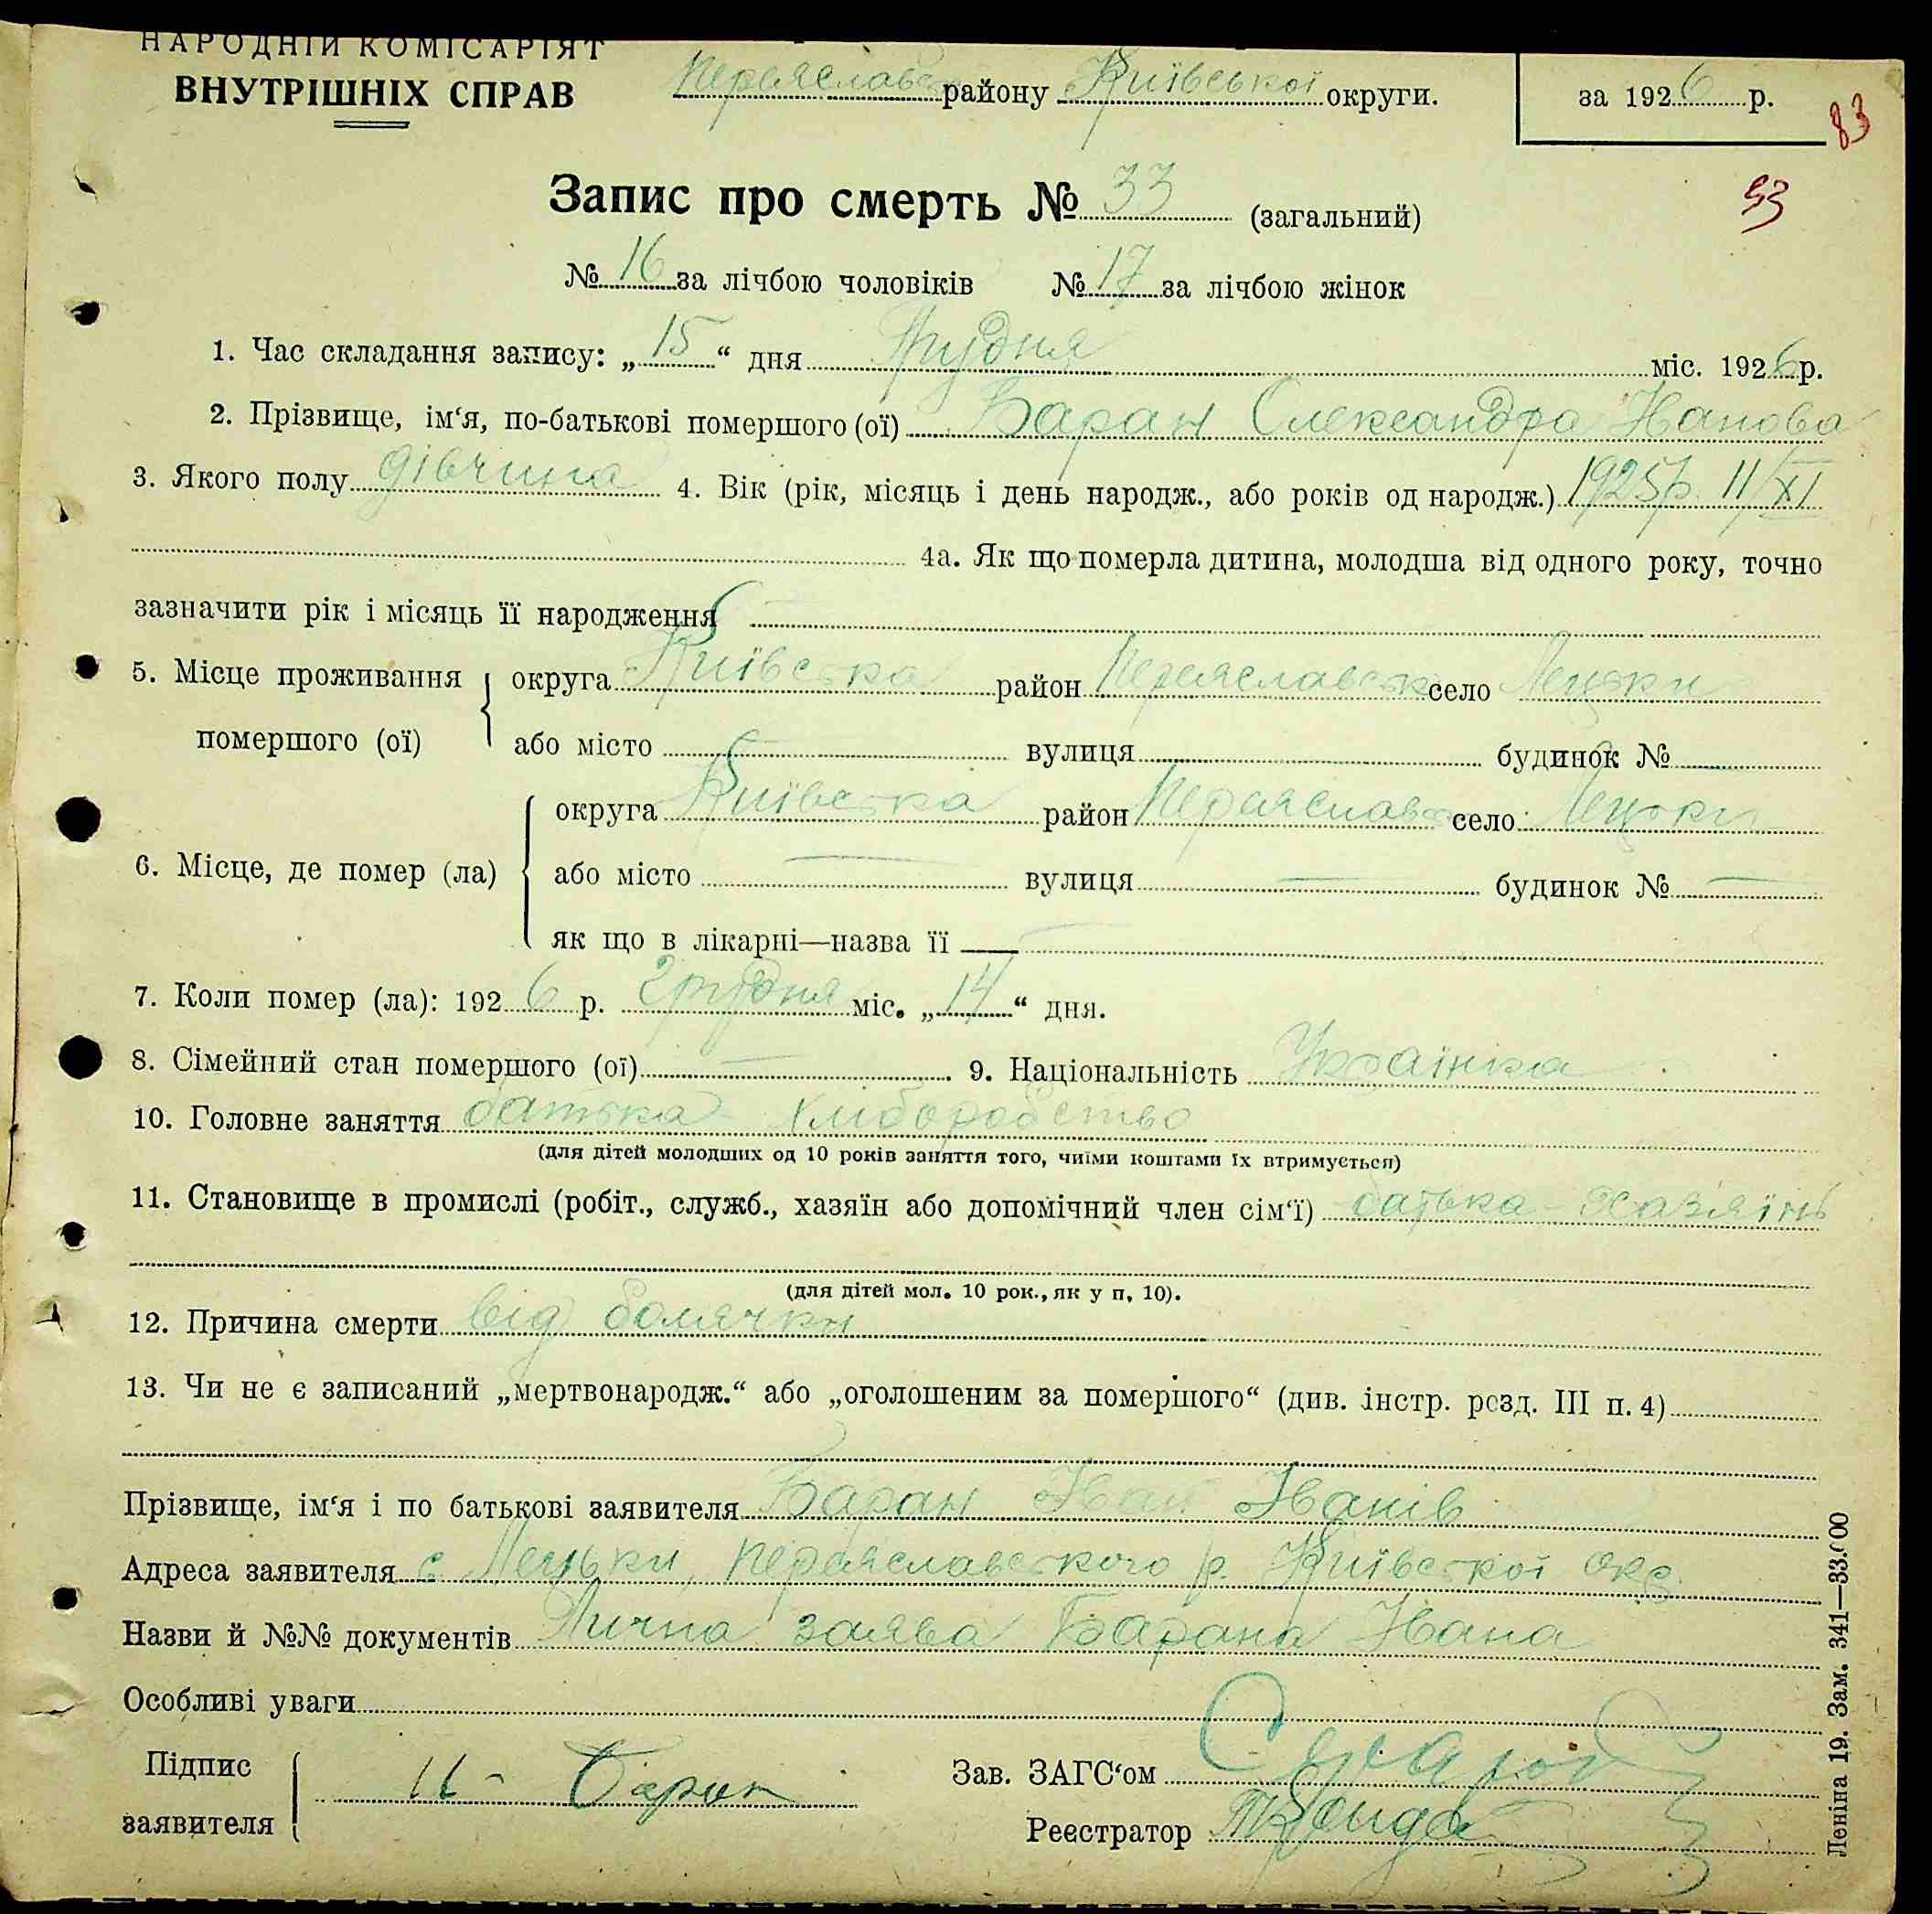 НАРОДНІЙ КОМІСАРІЯТ
ВНУТРІШНІХ СПРАВ
Переяславс району Київської округи.
за 1926 р.
83
Запис про смерть № 33 (загальний)
№ 16 за лічбою чоловіків № 17 за лічбою жінок
1. Час складання запису: „15“ дня Грудня міс. 1926 р.
2. Прізвище, ім‘я, по-батькові помершого (ої) Баран Олександра Іванова
3. Якого полу дівчина 4. Вік (рік, місяць і день народж., або років од народж.) 1925 р. 11/XI
4а. Як що померла дитина, молодша від одного року, точно
зазначити рік і місяць її народження
5. Місце проживання помершого (ої) округа Київська район Переяславськ село Лецьки
або місто вулиця будинок №
6. Місце, де помер (ла) округа Київська район Переяслав село Лецьки
або місто — вулиця — будинок № —
як що в лікарні—назва її —
7. Коли помер (ла): 1926 р. Грудня міс. „14“ дня.
8. Сімейний стан помершого (ої) — 9. Національність Українка
10. Головне заняття батька - хліборобство
(для дітей молодших од 10 років заняття того, чиїми коштами їх втримується)
11. Становище в промислі (робіт., служб., хазяїн або допомічний член сім‘ї) батька - хазяїнъ
(для дітей мол. 10 рок., як у п. 10).
12. Причина смерти від болячки
13. Чи не є записаний „мертвонародж.“ або „оголошеним за помершого“ (див. інстр. розд. III п. 4)
Прізвище, ім‘я і по батькові заявителя Баран Іван Іванів
Адреса заявителя с. Лецьки, Переяславського р. Київської окр.
Назви й №№ документів Лична заява Барана Івана
Особливі уваги
Підпис заявителя Баран
Зав. ЗАГС‘ом
Реєстратор
Леніна 19. Зам. 341—33.000